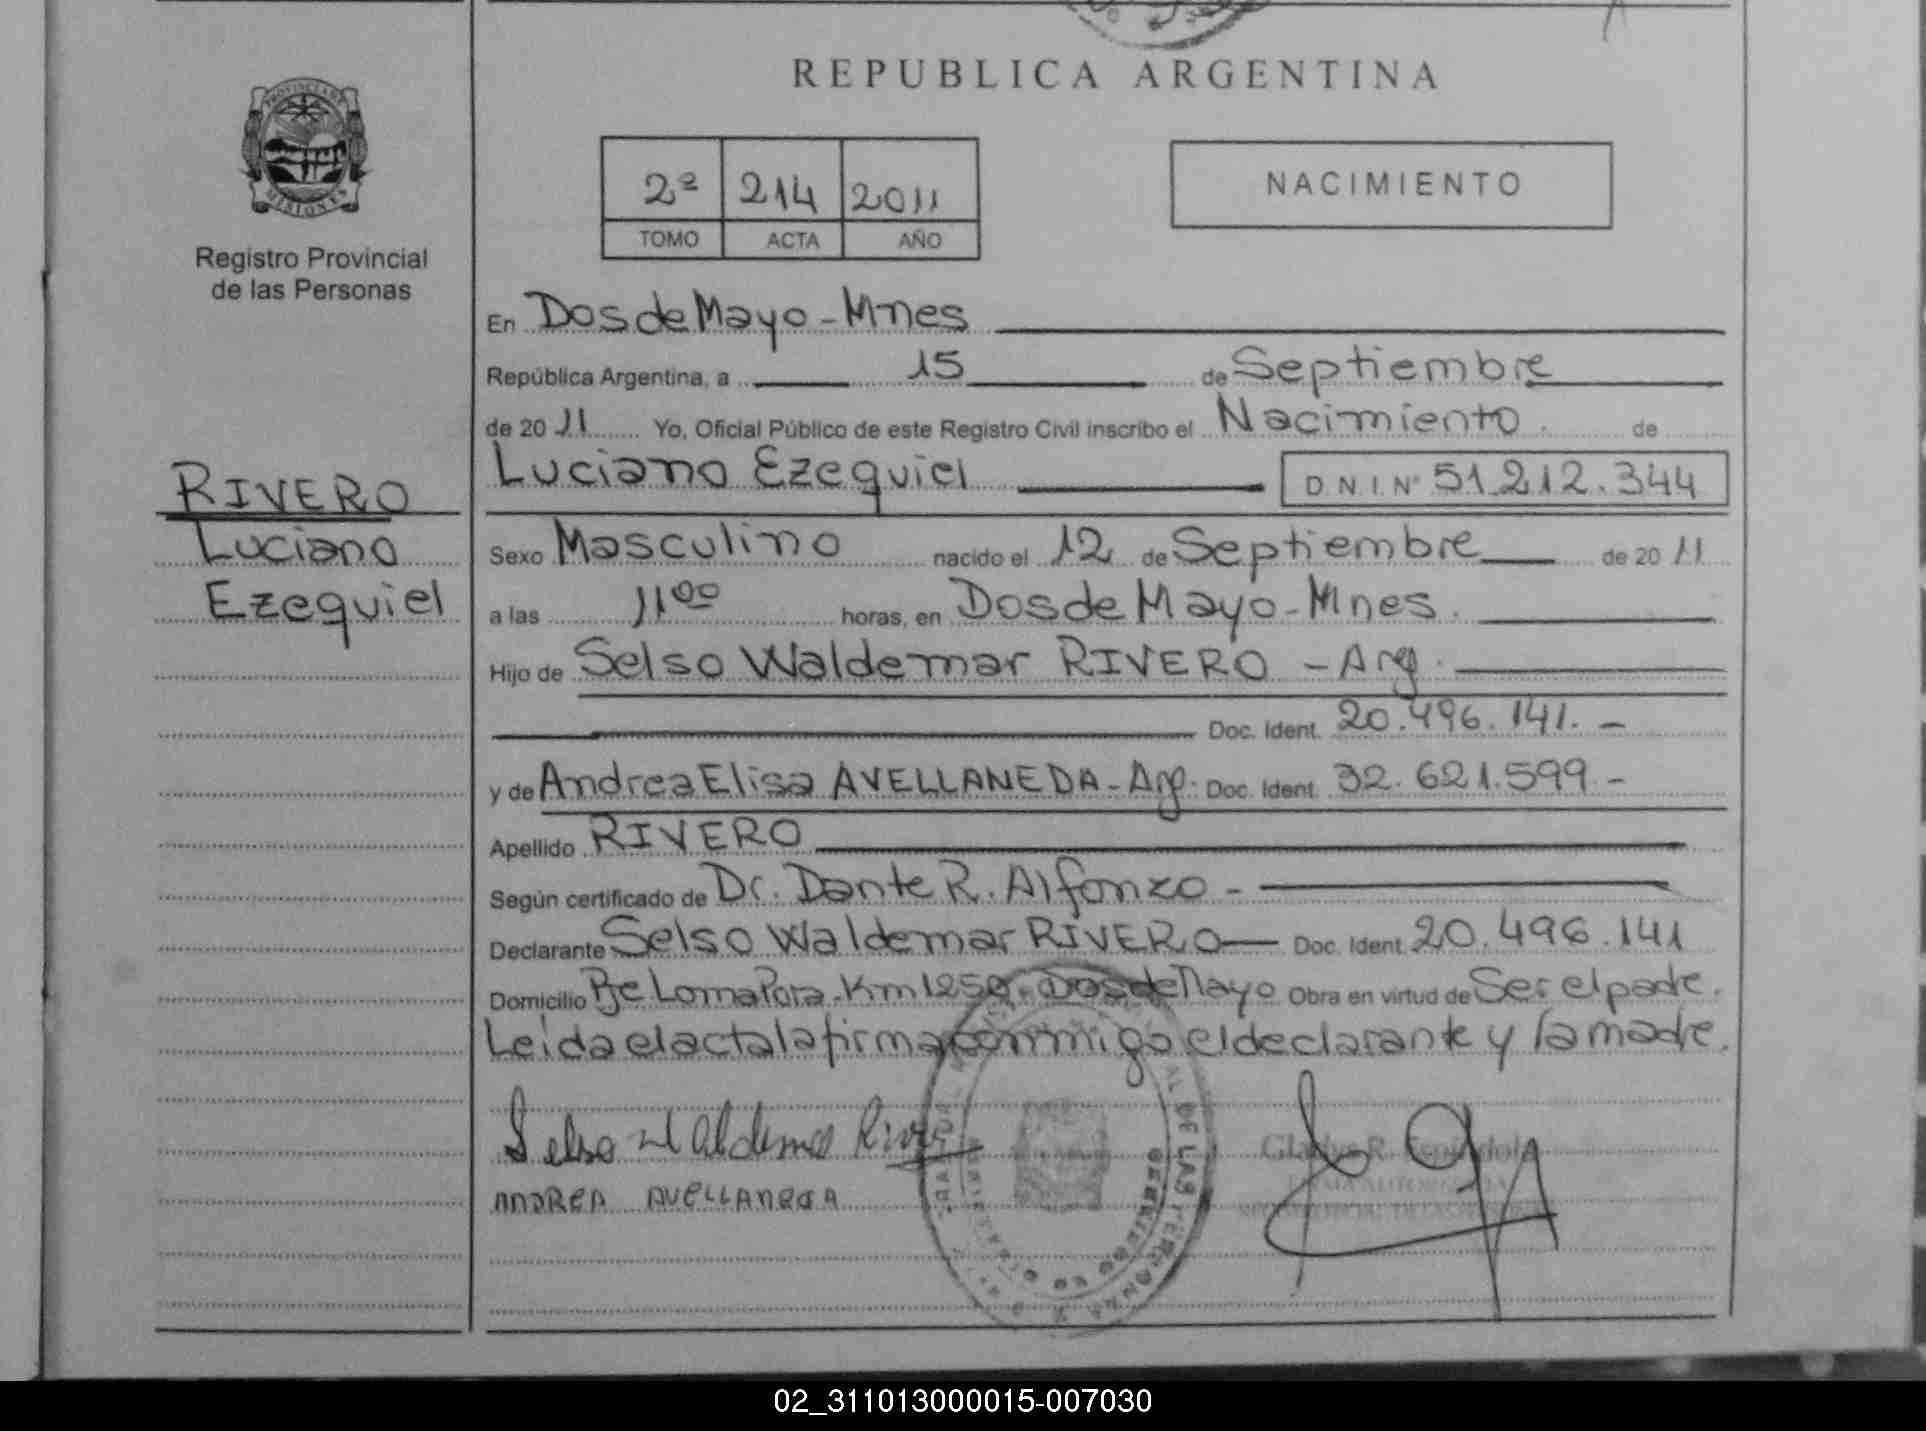 REPUBLICA ARGENTINA
PROVINCIA DE
MISIONES
Registro Provincial
de las Personas
2º 214 2011
TOMO ACTA AÑO
NACIMIENTO
En Dos de Mayo - Mnes
República Argentina, a 15 de Septiembre
de 20 11 Yo, Oficial Público de este Registro Civil inscribo el Nacimiento. de
Luciano Ezequiel D.N.I. Nº 51.212.344
RIVERO
Luciano
Ezequiel
Sexo Masculino nacido el 12 de Septiembre de 20 11
a las 11 00 horas, en Dos de Mayo - Mnes.
Hijo de Selso Waldemar RIVERO - Arg.
Doc. Ident. 20.496.141. -
y de Andrea Elisa AVELLANEDA - Arg. Doc. Ident. 32.621.599 -
Apellido RIVERO
Según certificado de Dr. Dante R. Alfonzo -
Declarante Selso Waldemar RIVERO Doc. Ident. 20.496.141
Domicilio Pje Loma Pora - Km 1250 - Dos de Mayo Obra en virtud de Ser el padre.
Leida el acta la firma conmigo el declarante y la madre.
Selso Waldemar Rivero
ANDREA AVELLANEDA
Gladys R. Espindola
02_311013000015-007030